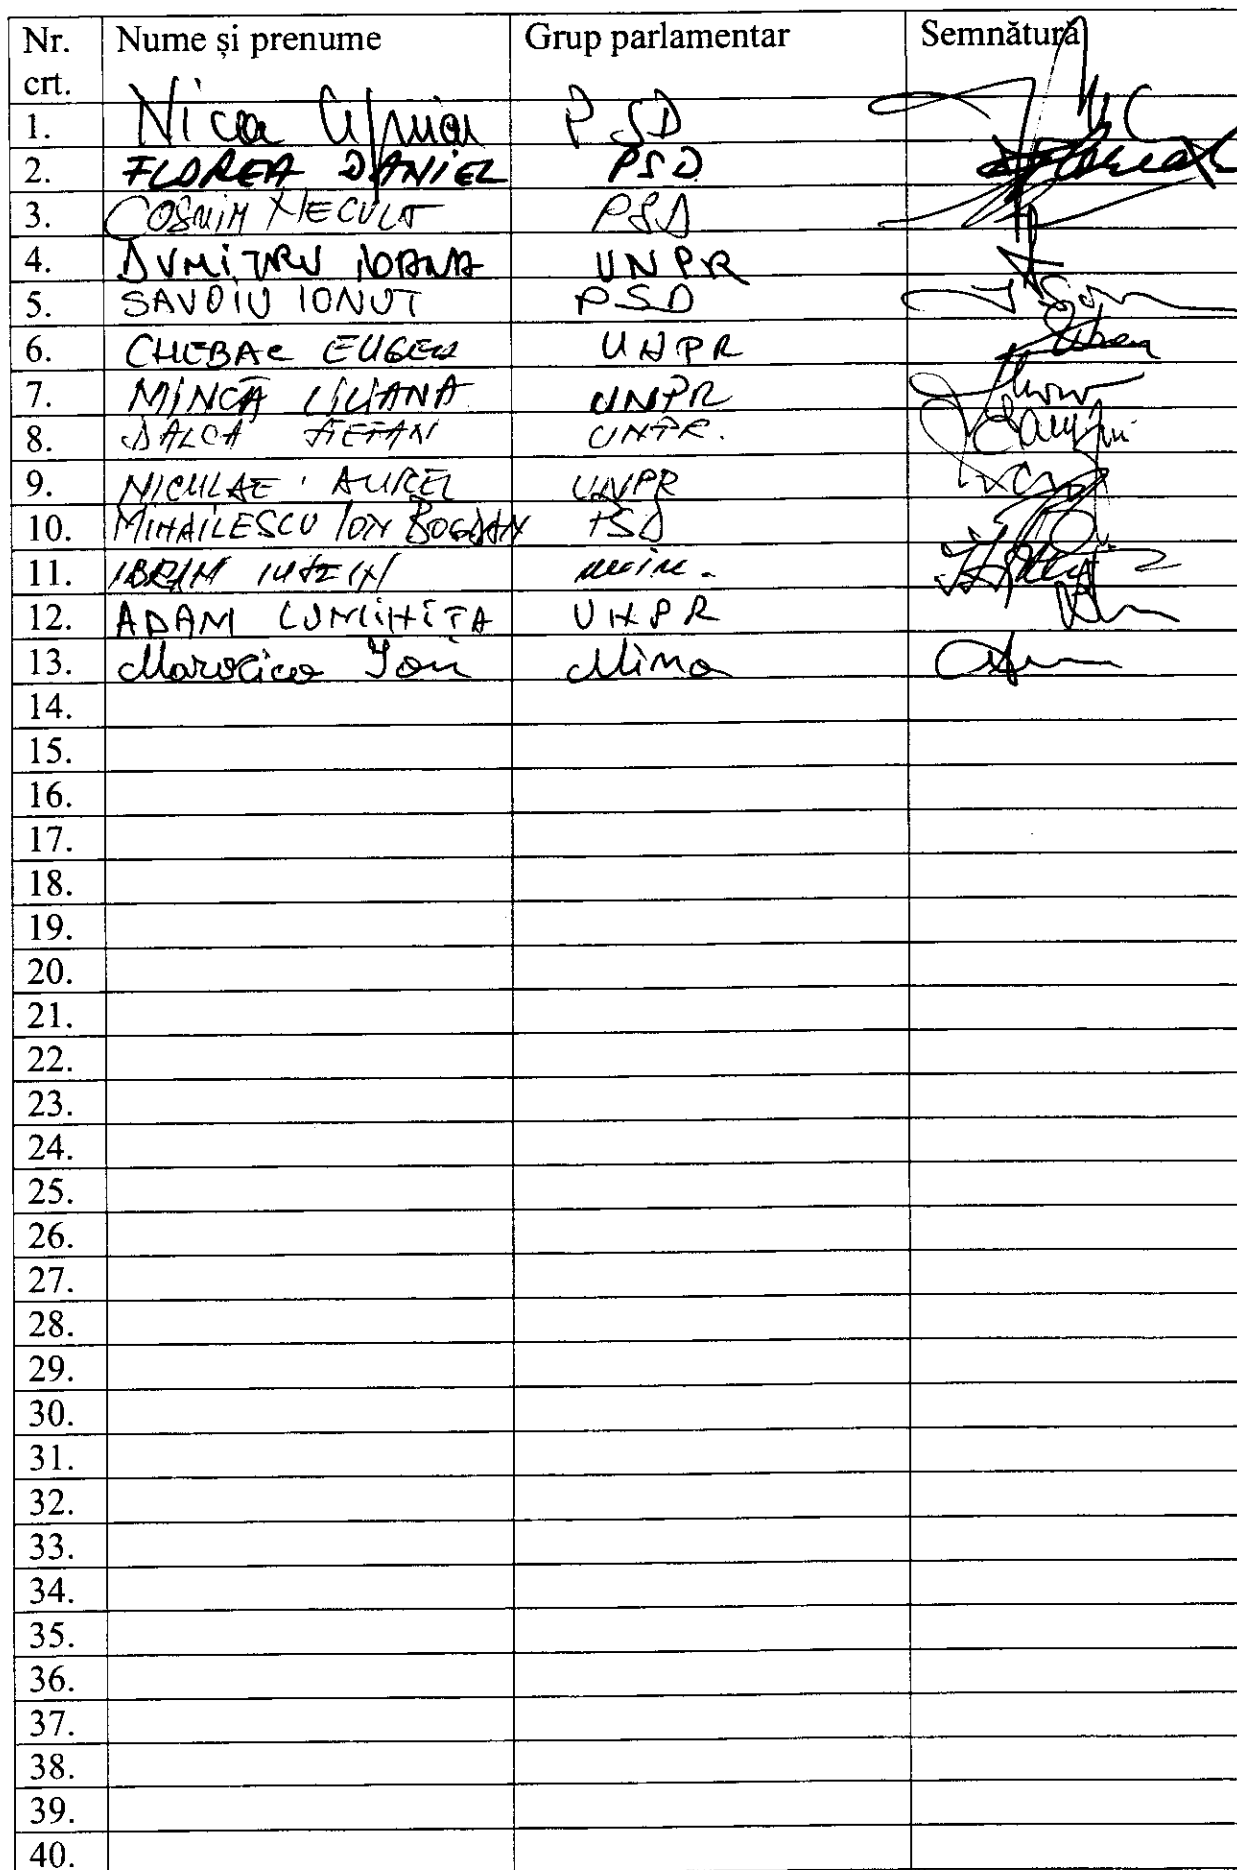 Nr. crt. Nume și prenume Grup parlamentar Semnătură
1. Nica PSD
2. FLOREA DANIEL PSD
3. COSMIN NECULA PSD
4. DUMITRU IOANA UNPR
5. SAVOIU IONUT PSD
6. CHEBAC EUGEN UNPR
7. MINCĂ LILIANA UNPR
8. DALCA ȘTEFAN UNPR.
9. NICULAE AUREL UNPR
10. MIHAILESCU ION BOGDAN PSD
11. IBRAM IUSEIN min.
12. ADAM LUMINITA UNPR
13. Marocico Ion Mino
14.
15.
16.
17.
18.
19.
20.
21.
22.
23.
24.
25.
26.
27.
28.
29.
30.
31.
32.
33.
34.
35.
36.
37.
38.
39.
40.